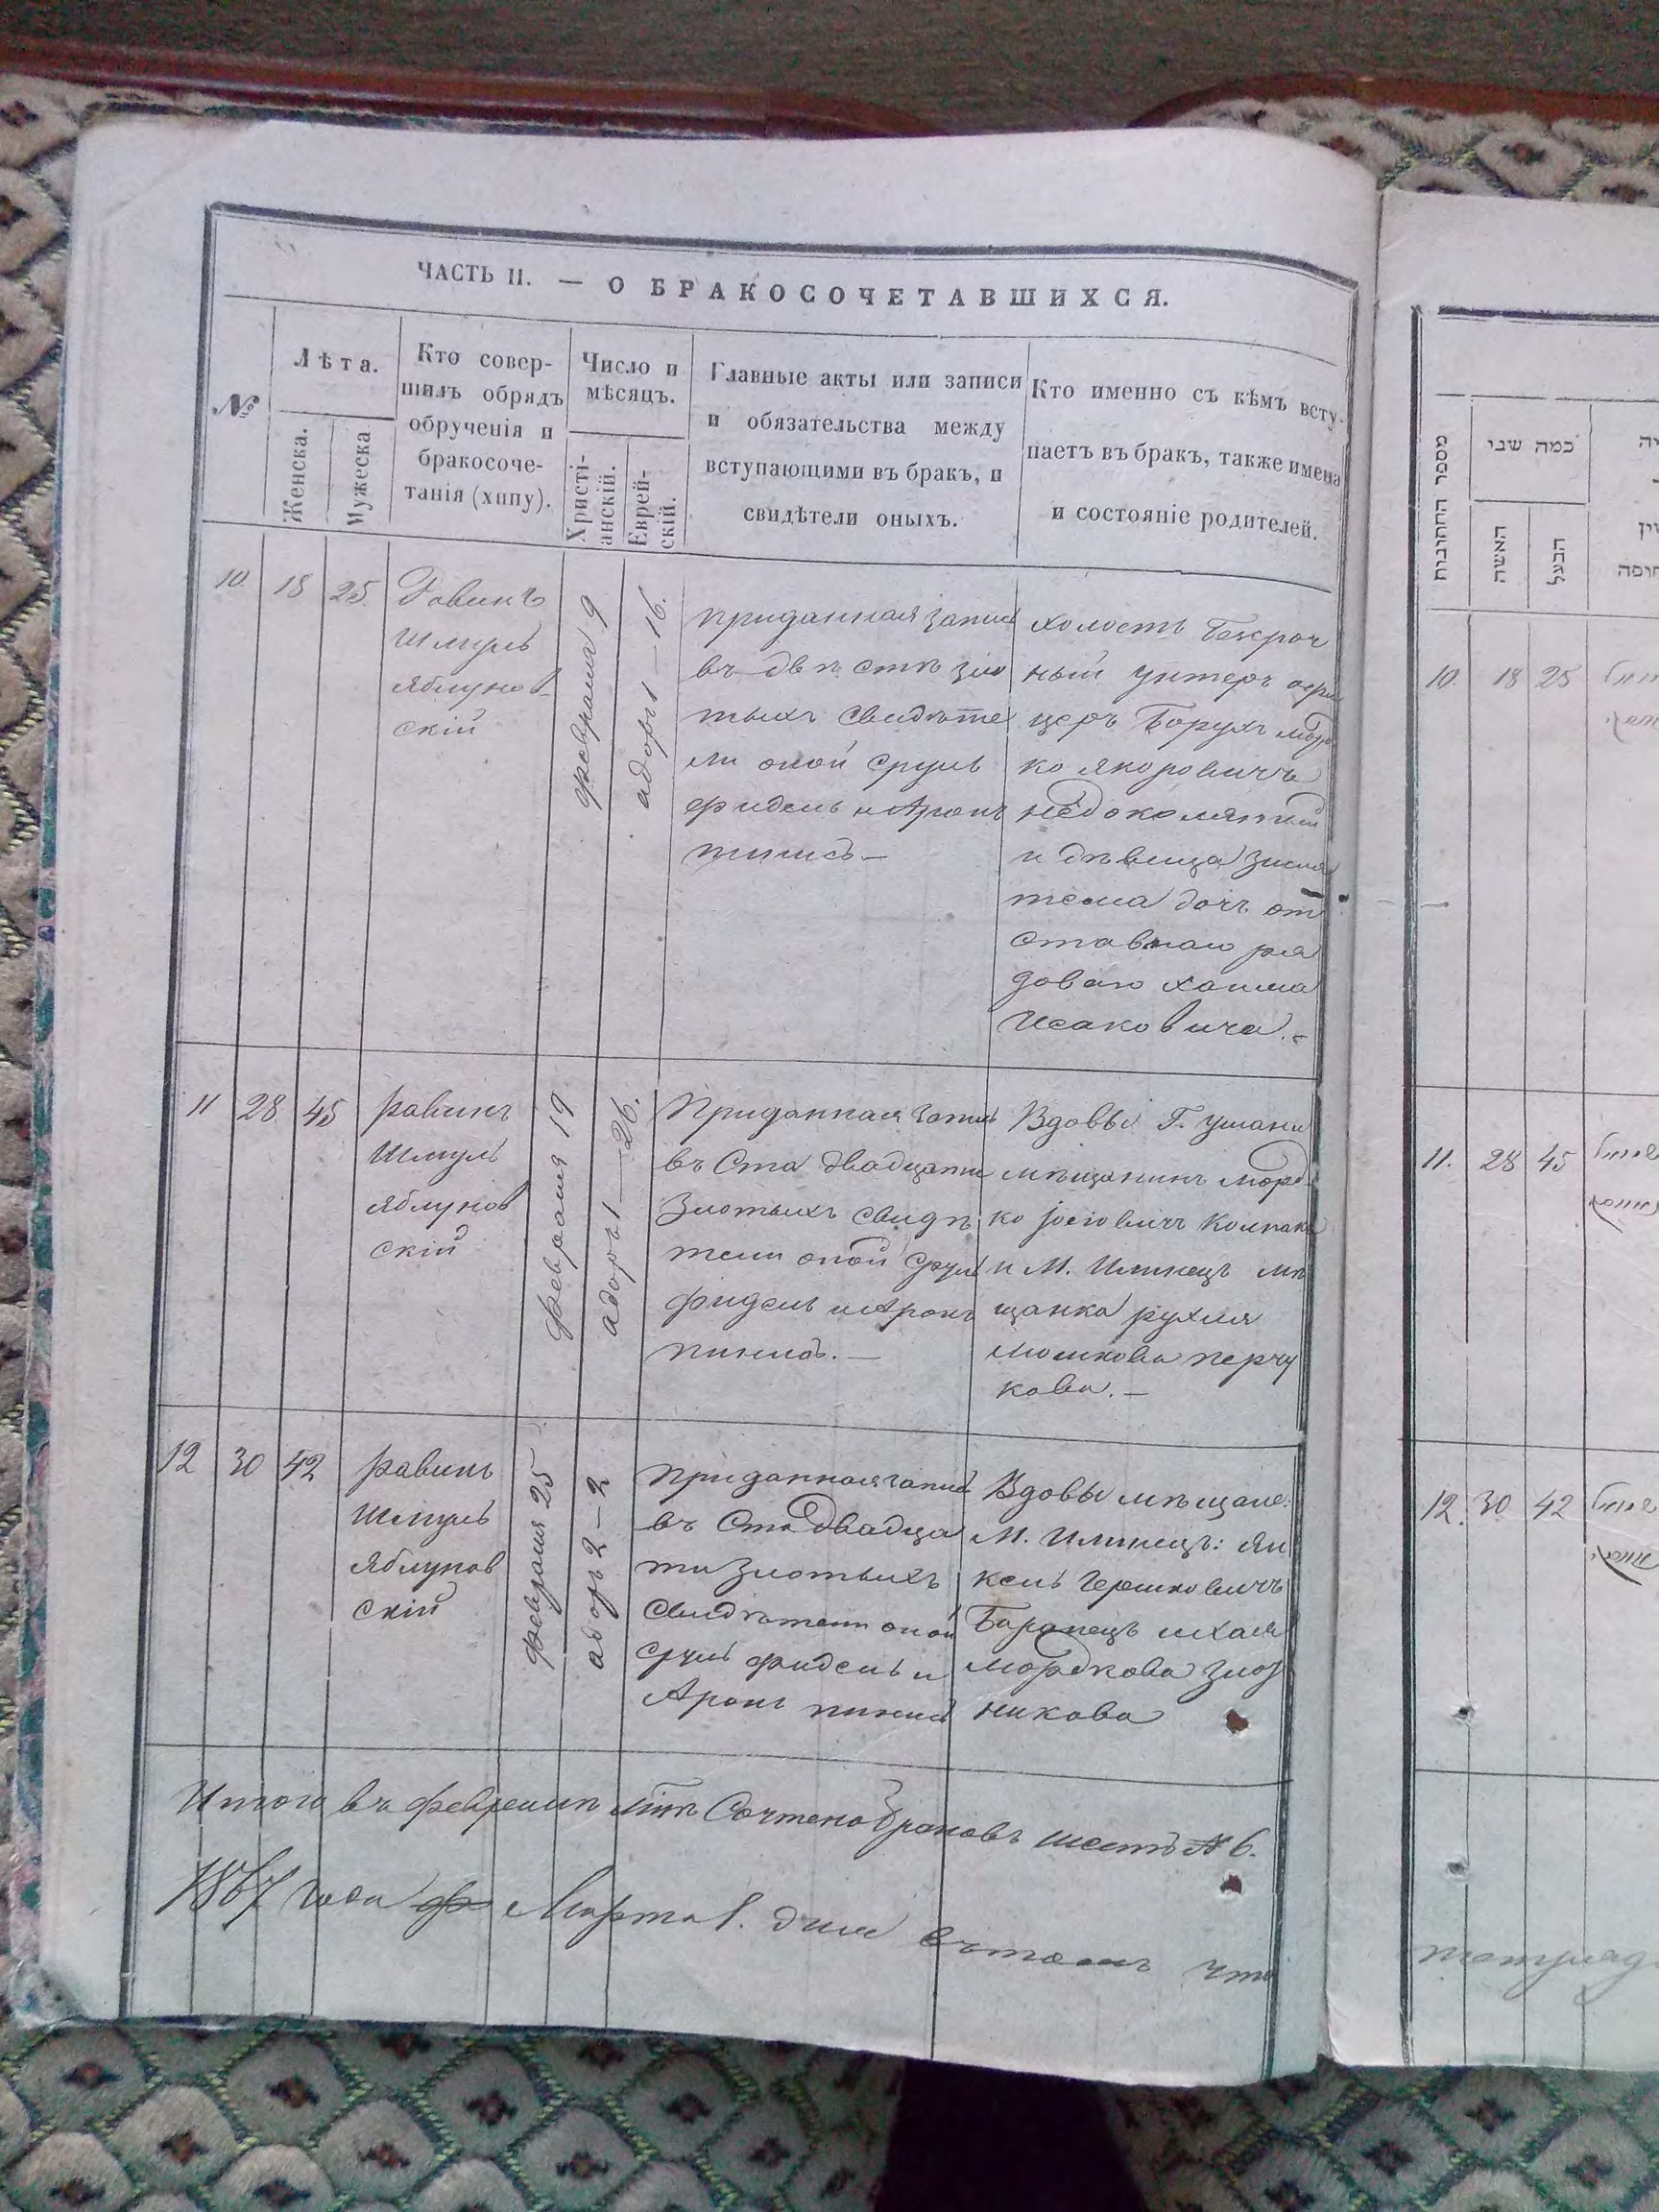 ЧАСТЬ II. — О БРАКОСОЧЕТАВШИХСЯ.
№
Лѣта.
Женска.
Мужеска
Кто совер-
шилъ обрядъ
обрученія и
бракосоче-
танія (хипу).
Число и
мѣсяцъ.
Христі-
анскій.
Еврей-
скій.
Главные акты или записи
и обязательства между
вступающими въ бракъ, и
свидѣтели оныхъ.
Кто именно съ кѣмъ всту-
паетъ въ бракъ, также имена
и состояніе родителей.
10. 18 25.
Равинъ
Шмуль
Яблунов-
скій
февраля 9
адоръ 1 — 16.
приданная запись
въ двѣ стѣ зло
тыхъ свидѣте
ли оной Сруль
фидель и Аронъ
холостъ безсроч
ный унтеръ офи
церъ Борухъ Морд
ко
и дѣвица
дочь от
ставнаго ря
доваго Хаима
Исаковича.
11 28 45
равинъ
Шмуль
Яблунов
скій
февраля 19
адоръ 1 — 26.
Приданная запись
въ Ста двадцати
Злотыхъ свидѣ
тели оной Сруль
фидель и Аронъ
Вдовы Г. Умани
мѣщанинъ Морд-
ко Іосіовичъ
и М. Илинецъ мѣ
щанка рухля
мошкова перчу
кова. —
12 30 42
равинъ
Шмуль
Яблунов
скій
февраля 25
адоръ 2 — 2
приданная запись
въ Сто двадца
ти злотыхъ
свидѣтели оной
Сруль фидель и
Аронъ
Вдовы мѣщане:
М. Илинецъ: Ян
кель Гершковичъ
Баранецъ и Хая
мордкова
никова
Итого въ февралѣ м̃цѣ Сочтено браковъ шесть № 6.
1867 года Марта 1. дня
что
מספר החתונות
כמה שני
האשה
הבעל
חופה
10. 18 25
11. 28 45
12. 30 42